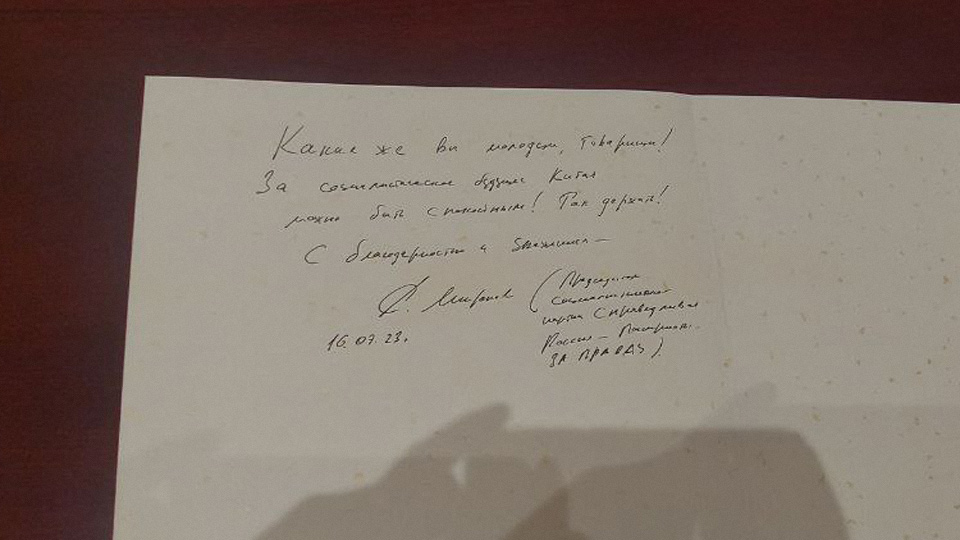 Какие же вы молодцы, товарищи!
За социалистическое будущее Китая
можно быть спокойным! Так держать!
С благодарностью и уважением –
С. Миронов (Председатель
Социалистической
партии Справедливая
Россия – Патриоты.
ЗА ПРАВДУ).
16.07.23.